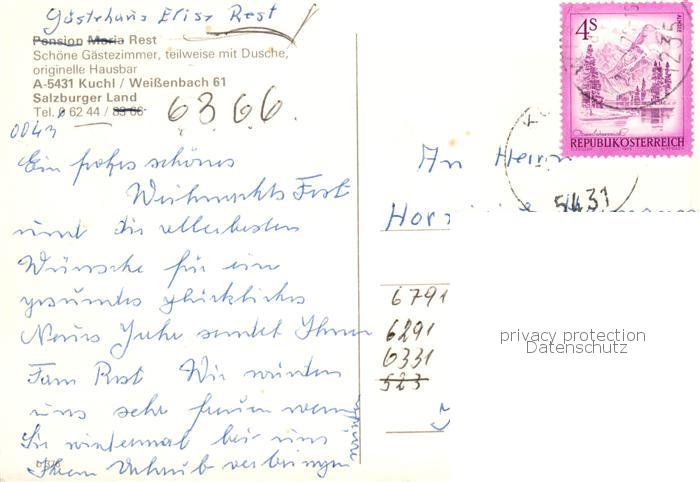 Gästehaus Elise Rest
Pension Maria Rest
Schöne Gästezimmer, teilweise mit Dusche,
originelle Hausbar
A-5431 Kuchl / Weißenbach 61
Salzburger Land
Tel. 0 62 44 / 6366.
0043
Ein frohes schönes
Weihnachts Fest
und die allerbesten
Wünsche für ein
gesundes glückliches
Neues Jahr sendet Ihnen
Fam Rest Wir würden
uns sehr freuen wenn
Sie wiedermal bei uns
Ihren Urlaub verbringen
würden
4S
ALMSEE
REPUBLIK ÖSTERREICH
5431
An Herrn
6791
6291
6331
523
privacy protection
Datenschutz